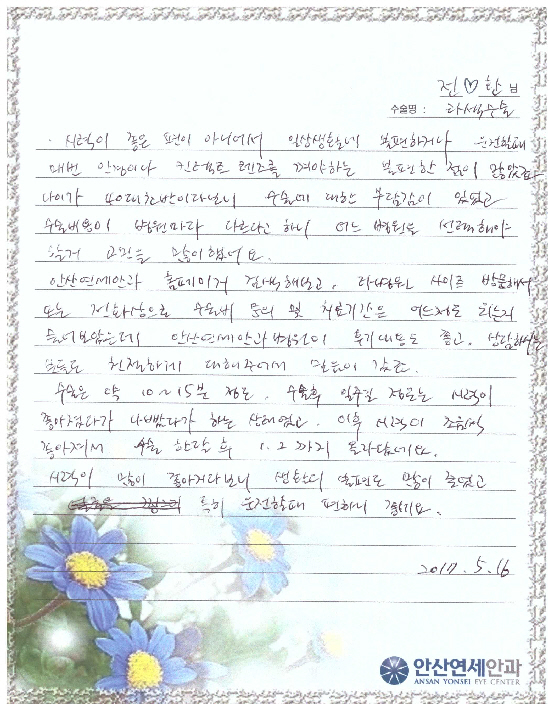 전♡한 님
수술명 : 라섹수술
· 시력이 좋은 편이 아니여서 일상생활에 불편하거나 운전할때
매번 안경이나 컨텍트 렌즈를 껴야하는 불편한 점이 많았고
나이가 40대 초반이다보니 수술에 대한 부담감이 있었고
수술비용이 병원마다 다르다고 하니 어느 병원을 선택해야
할지 고민을 많이했어요.
안산연세안과 홈페이지 검색해보고, 타병원 사이트 방문해서
또는 전화상으로 수술비 문의 및 치료기간은 어느정도 되는지
물어보았는데 안산연세안과 병원이 후기내용도 좋고, 상담하시는
분들도 친절하게 대해주어서 믿음이 갔죠.
수술은 약 10~15분 정도. 수술후 일주일 정도는 시력이
좋아졌다가 나빠졌다가 하는 상태였고. 이후 시력이 조금씩
좋아져서 수술 한달 후 1.2까지 올라갔네요.
시력이 많이 좋아지다보니 생활의 불편도 많이 줄었고
특히 운전할때 편하니 좋네요.
2017. 5. 16
안산연세안과
ANSAN YONSEI EYE CENTER